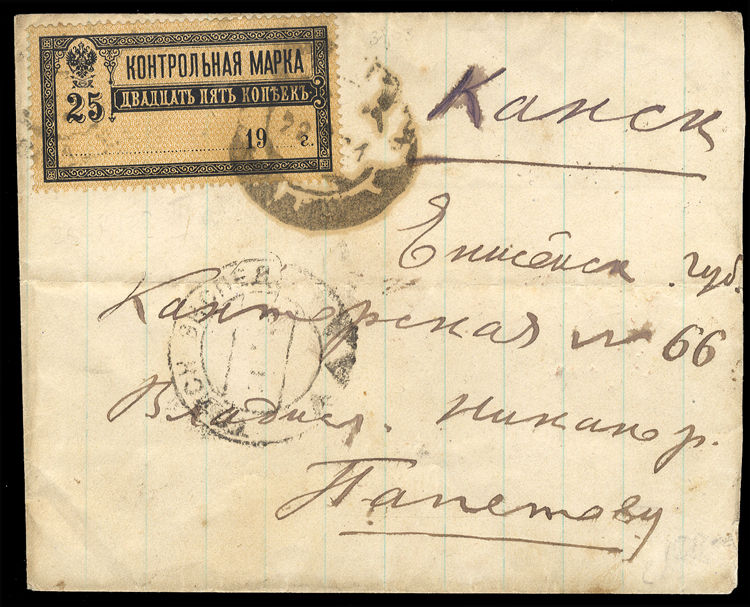 КОНТРОЛЬНАЯ МАРКА
25
ДВАДЦАТЬ ПЯТЬ КОПѢЕКЪ
19 г.
Канск
Енисейск. губ.
Канторская № 66
Владисл. Никанор.
Папетову